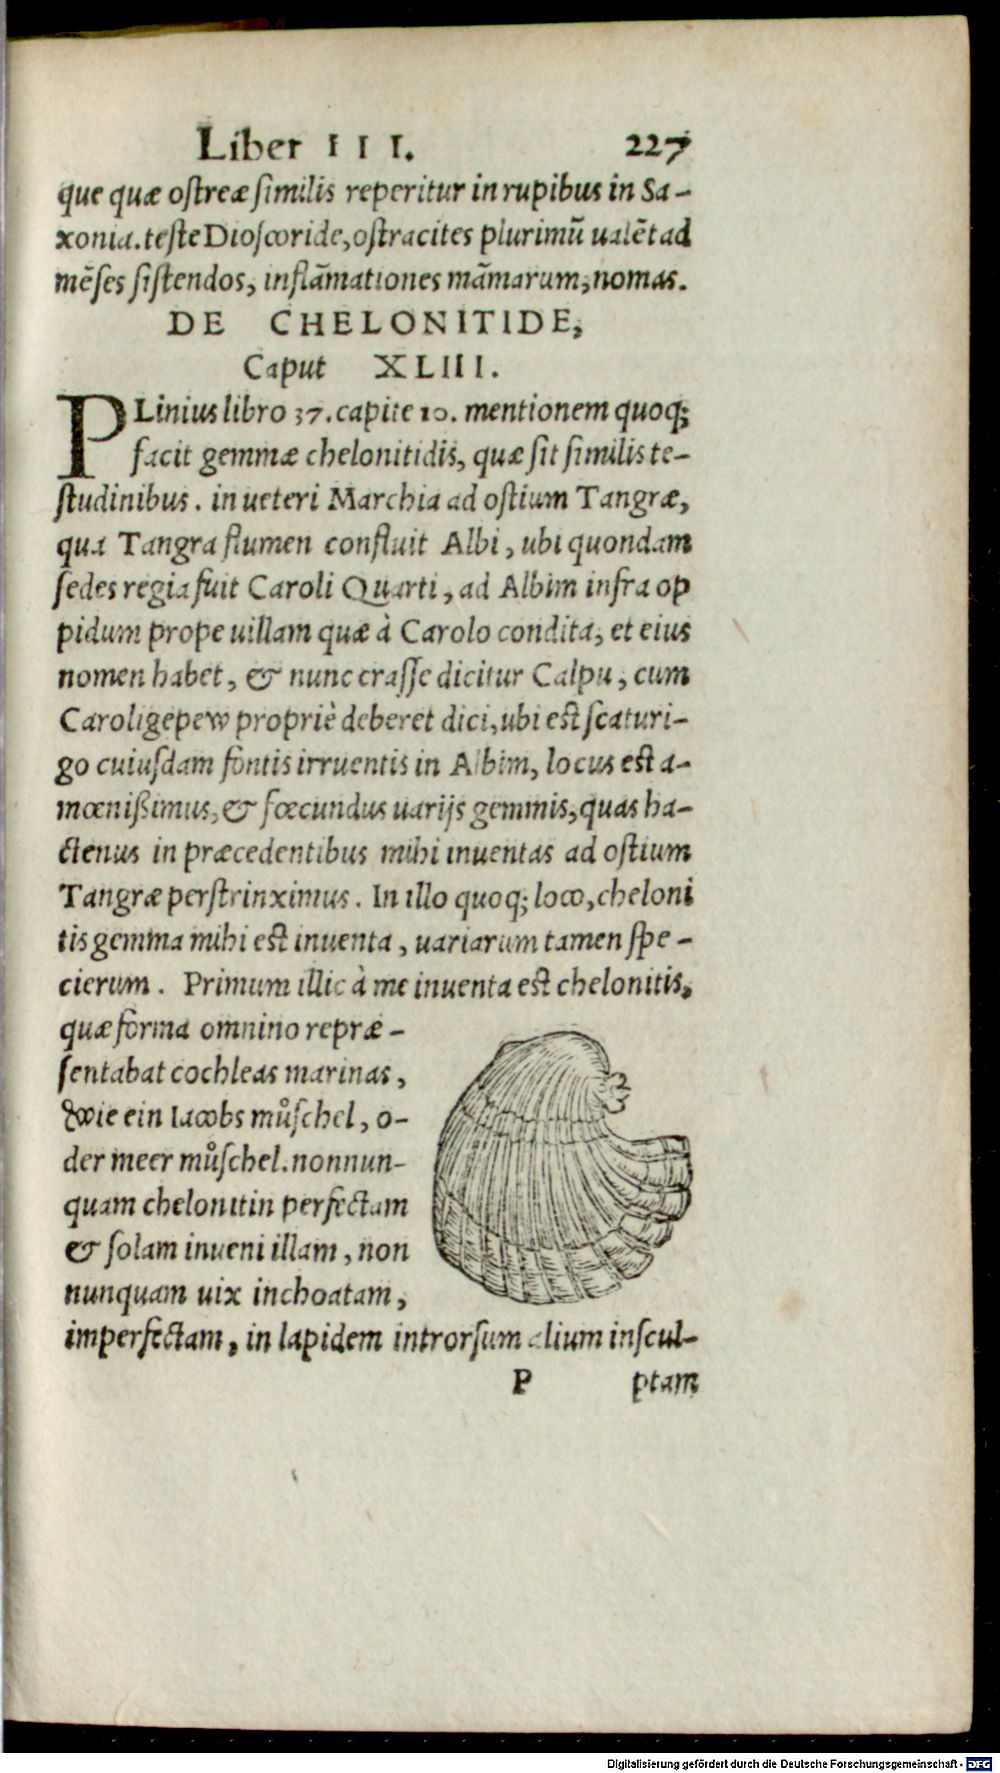 Liber III. 227
que quæ ostreæ similis reperitur in rupibus in Sa-
xonia. teste Dioscoride, ostracites plurimū ualēt ad
mēses sistendos, inflāmationes māmarum, nomas.
DE CHELONITIDE,
Caput XLIII.
PLinius libro 37. capite 10. mentionem quoq;
facit gemmæ chelonitidis, quæ sit similis te-
studinibus. in ueteri Marchia ad ostium Tangræ,
qua Tangra flumen confluit Albi, ubi quondam
sedes regia fuit Caroli Quarti, ad Albim infra op
pidum prope uillam quæ à Carolo condita, et eius
nomen habet, & nunc crasse dicitur Calpu, cum
Caroligepew propriè deberet dici, ubi est scaturi-
go cuiusdam fontis irruentis in Albim, locus est a-
mœnißimus, & fœcundus uarijs gemmis, quas ha-
ctenus in præcedentibus mihi inuentas ad ostium
Tangræ perstrinximus. In illo quoq; loco, cheloni
tis gemma mihi est inuenta, uariarum tamen spe-
cierum. Primum illic à me inuenta est chelonitis,
quæ forma omnino repræ-
sentabat cochleas marinas,
wie ein Iacobs můschel, o-
der meer můschel. nonnun-
quam chelonitin perfectam
& solam inueni illam, non
nunquam uix inchoatam,
imperfectam, in lapidem introrsum alium inscul-
P ptam
Digitalisierung gefördert durch die Deutsche Forschungsgemeinschaft - DFG